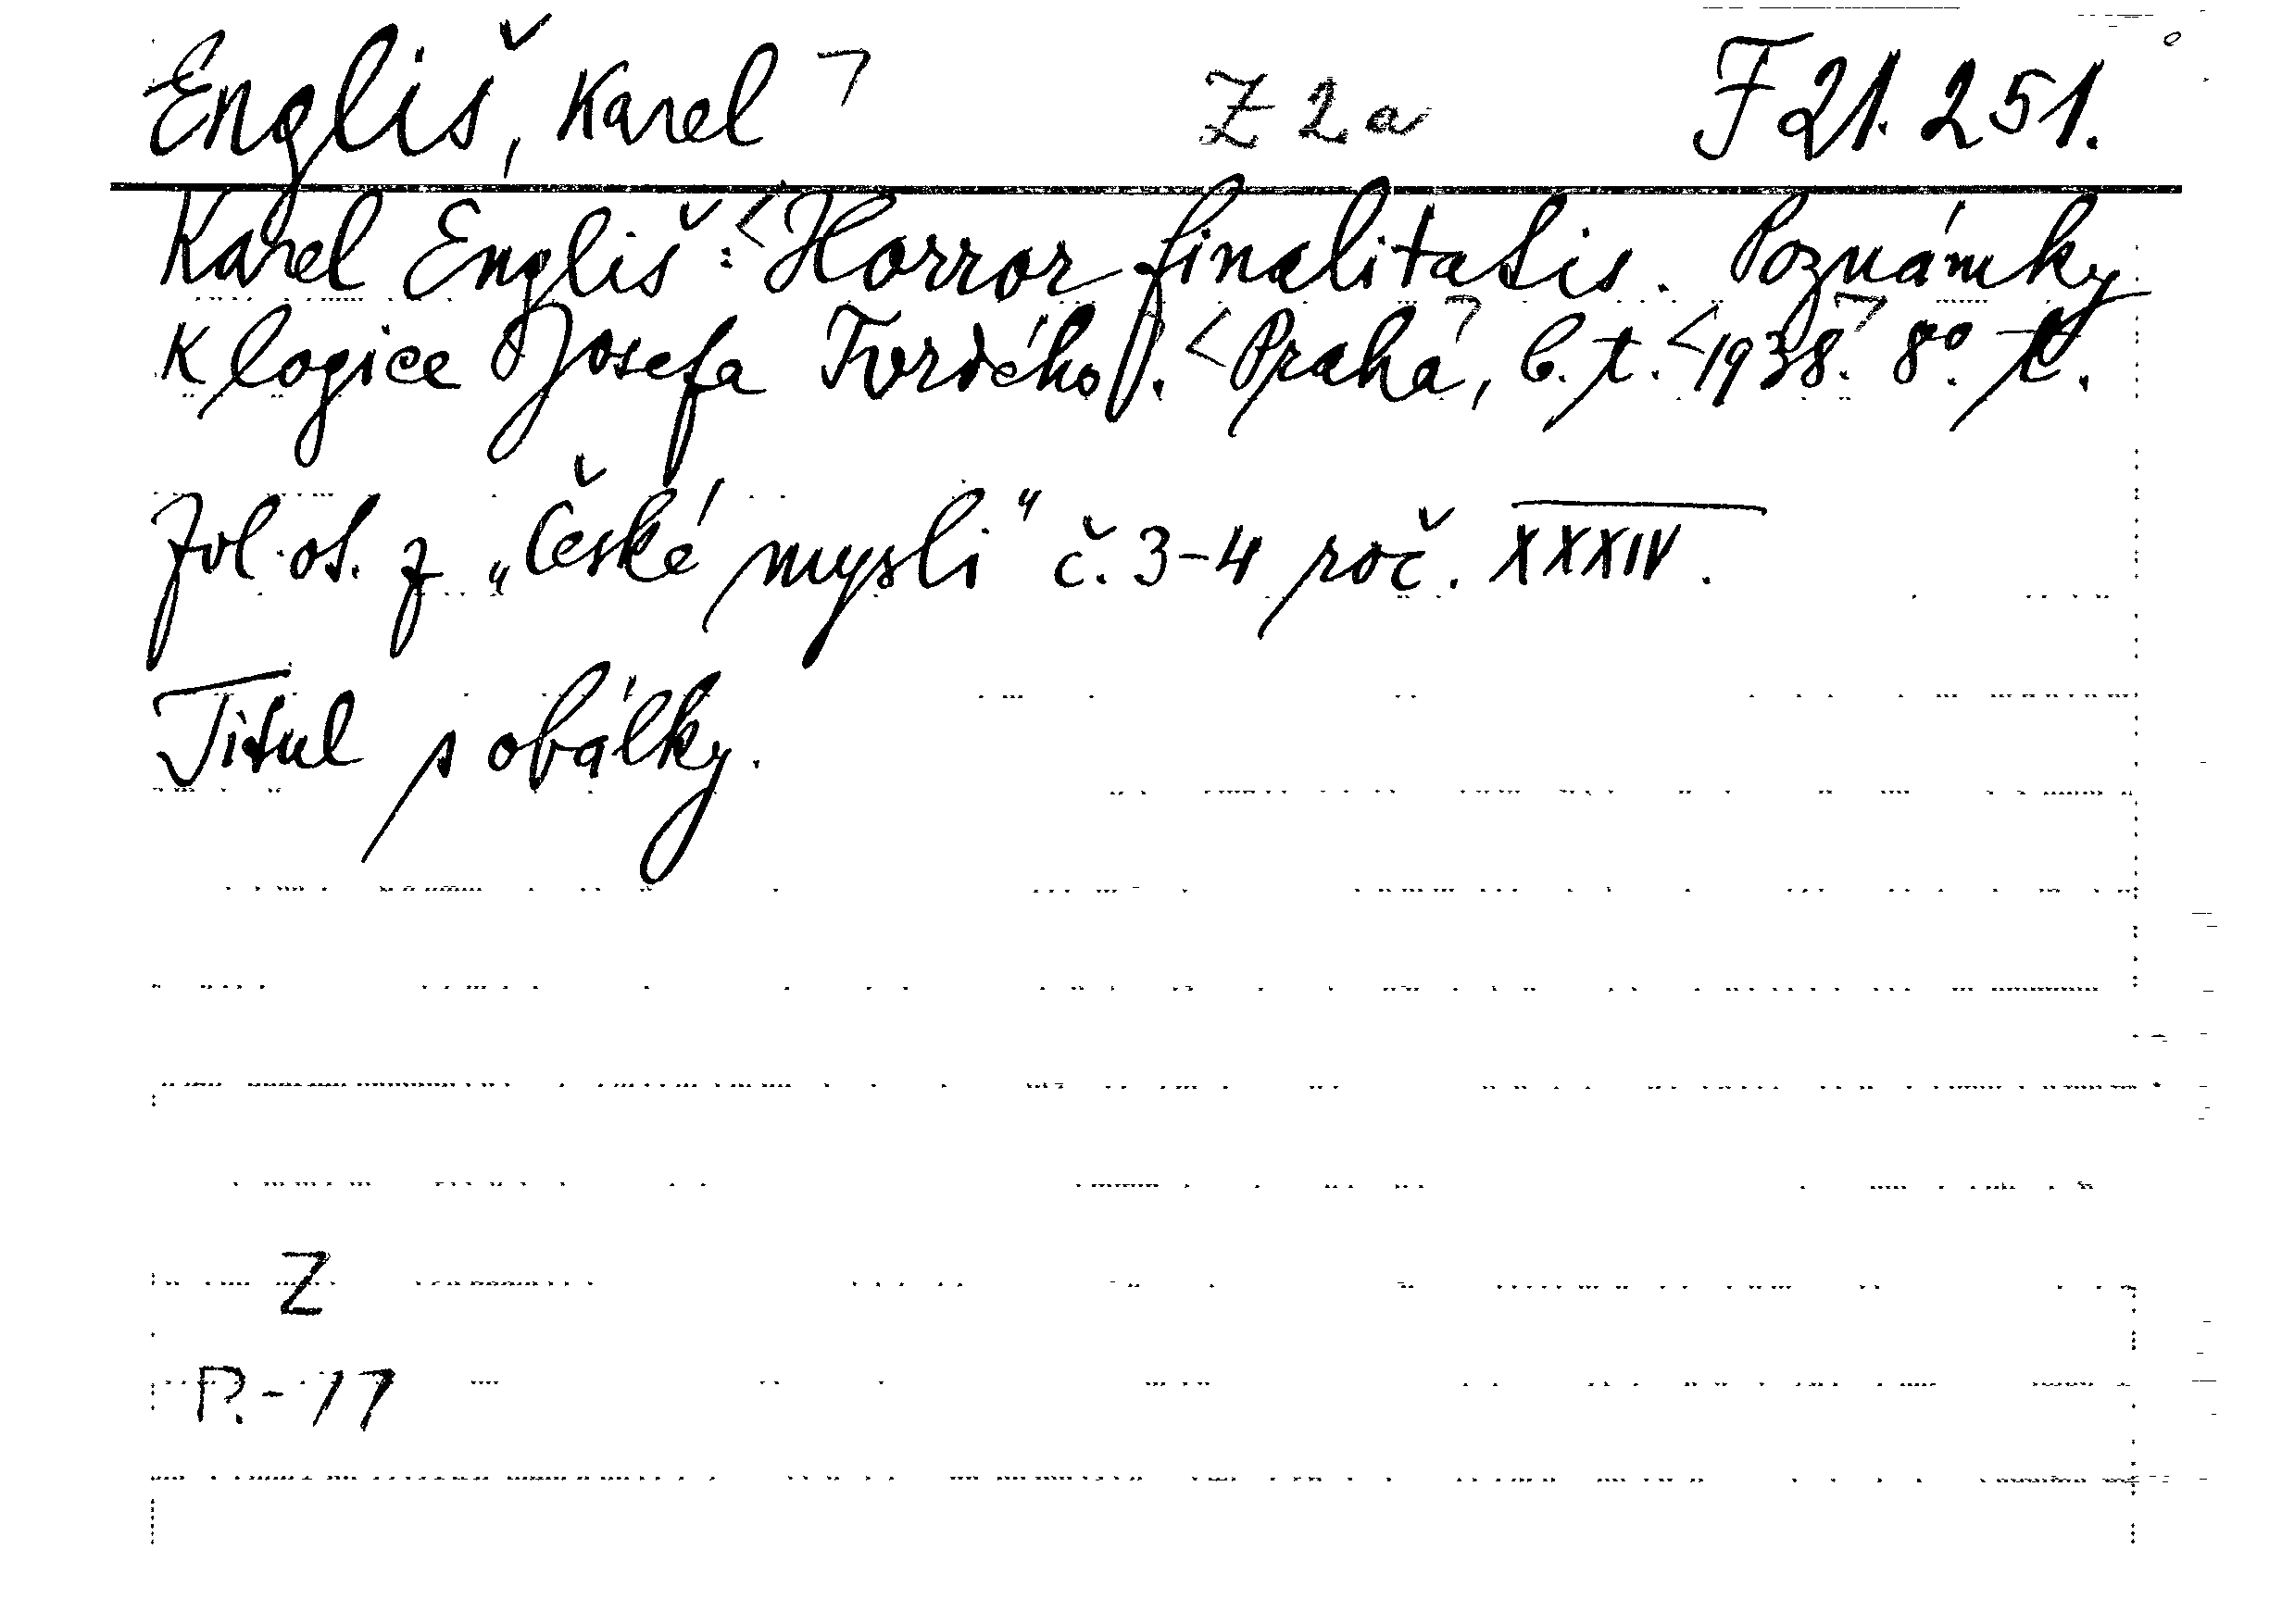 Engliš, Karel ㄱ Z 2a F 21.251.
Karel Engliš: <Horror finalitatis. Poznámky
k logice Josefa Tvrdého. <Praha, b. t. <1938. 8°.
Zvl. ot. z „České mysli" č. 3-4 roč. XXXIV.
Titul s obálky.
Z
P.-17